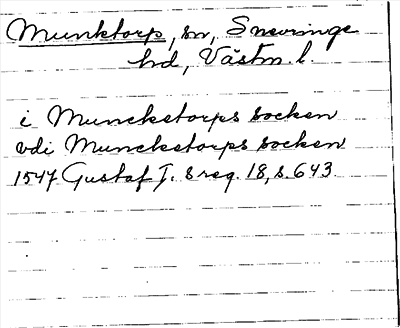 Munktorp, sn, Snevringe
hd, Västm. l.
i Muncketorps socken
vdi Muncketorps socken
1547 Gustaf I:s reg. 18, s. 643.